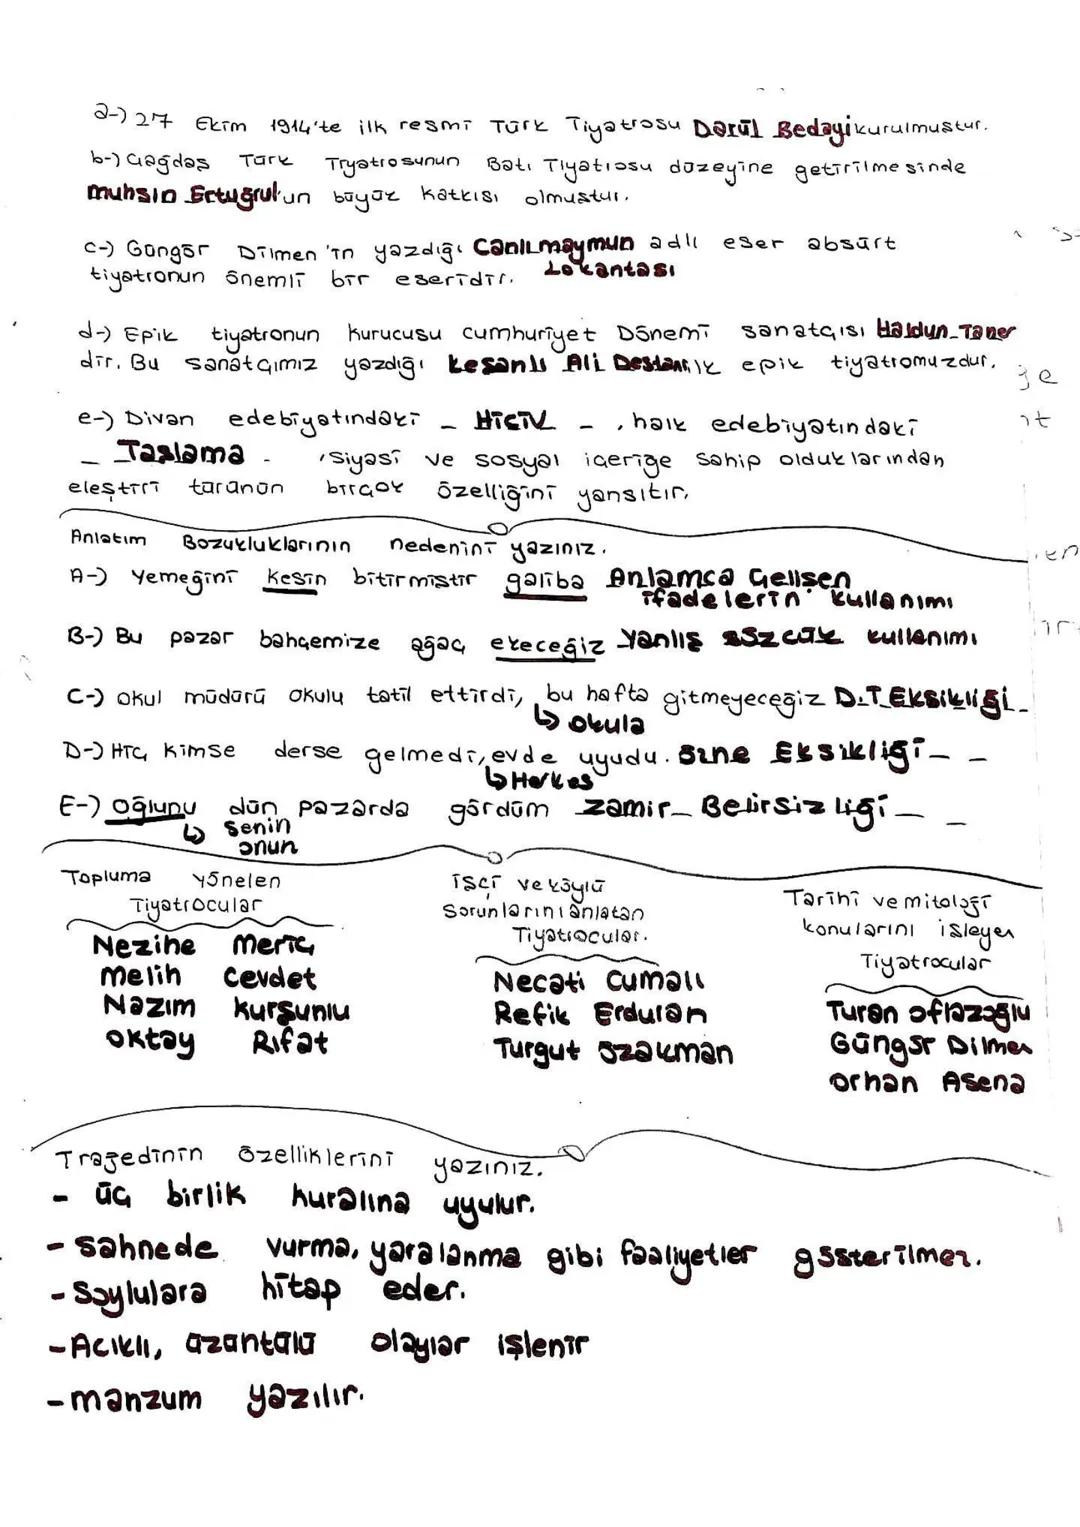 a-) 27 Ekim 1914'te ilk resmi Türk Tiyatrosu Darül Bedayi kurulmuştur.
b-) Çağdaş Türk Tiyatrosunun Batı Tiyatrosu düzeyine getirilmesinde
Muhsin Ertuğrul'un büyük katkısı olmuştur.
c-) Güngör Dilmen'in yazdığı Canlı maymun adlı eser absürt
Lokantası
tiyatronun önemli bir eseridir.
d-) Epik tiyatronun kurucusu cumhuriyet Dönemi sanatçısı Haldun Taner
dir. Bu sanatçımız yazdığı Keşanlı Ali Destanı ilk epik tiyatromuzdur.
e-) Divan edebiyatındaki _ Hiciv _ , halk edebiyatındaki
_ Taşlama _ , siyasi ve sosyal içeriğe sahip olduklarından
eleştiri türünün birçok özelliğini yansıtır.
Anlatım Bozukluklarının nedenini yazınız.
A-) Yemeğini kesin bitirmiştir galiba Anlamca Gelişen
ifadelerin kullanımı
B-) Bu pazar bahçemize ağaç ekeceğiz Yanlış sözcük kullanımı
C-) Okul müdürü okulu tatil ettirdi, bu hafta gitmeyeceğiz D.T Eksikliği
↳ okula
D-) Hiç kimse derse gelmedi, evde uyudu. Özne Eksikliği _ _
↳ Herkes
E-) oğlunu dün pazarda gördüm zamir Belirsizliği _ _
↳ Senin
onun
Topluma yönelen
Tiyatrocular
Nezihe Meriç
Melih Cevdet
Nazım Kurşunlu
Oktay Rıfat
işçi ve köylü
Sorunlarını anlatan
Tiyatrocular.
Necati Cumalı
Refik Erduran
Turgut Özakman
Tarihi ve mitoloji
konularını işleyen
Tiyatrocular
Turan oflazoğlu
Güngör Dilmen
Orhan Asena
Trajedinin özelliklerini yazınız.
- üç birlik kuralına uyulur.
- Sahnede vurma, yaralanma gibi faaliyetler gösterilmez.
- Soylulara hitap eder.
- Acıklı, üzüntülü olaylar işlenir
- manzum yazılır.